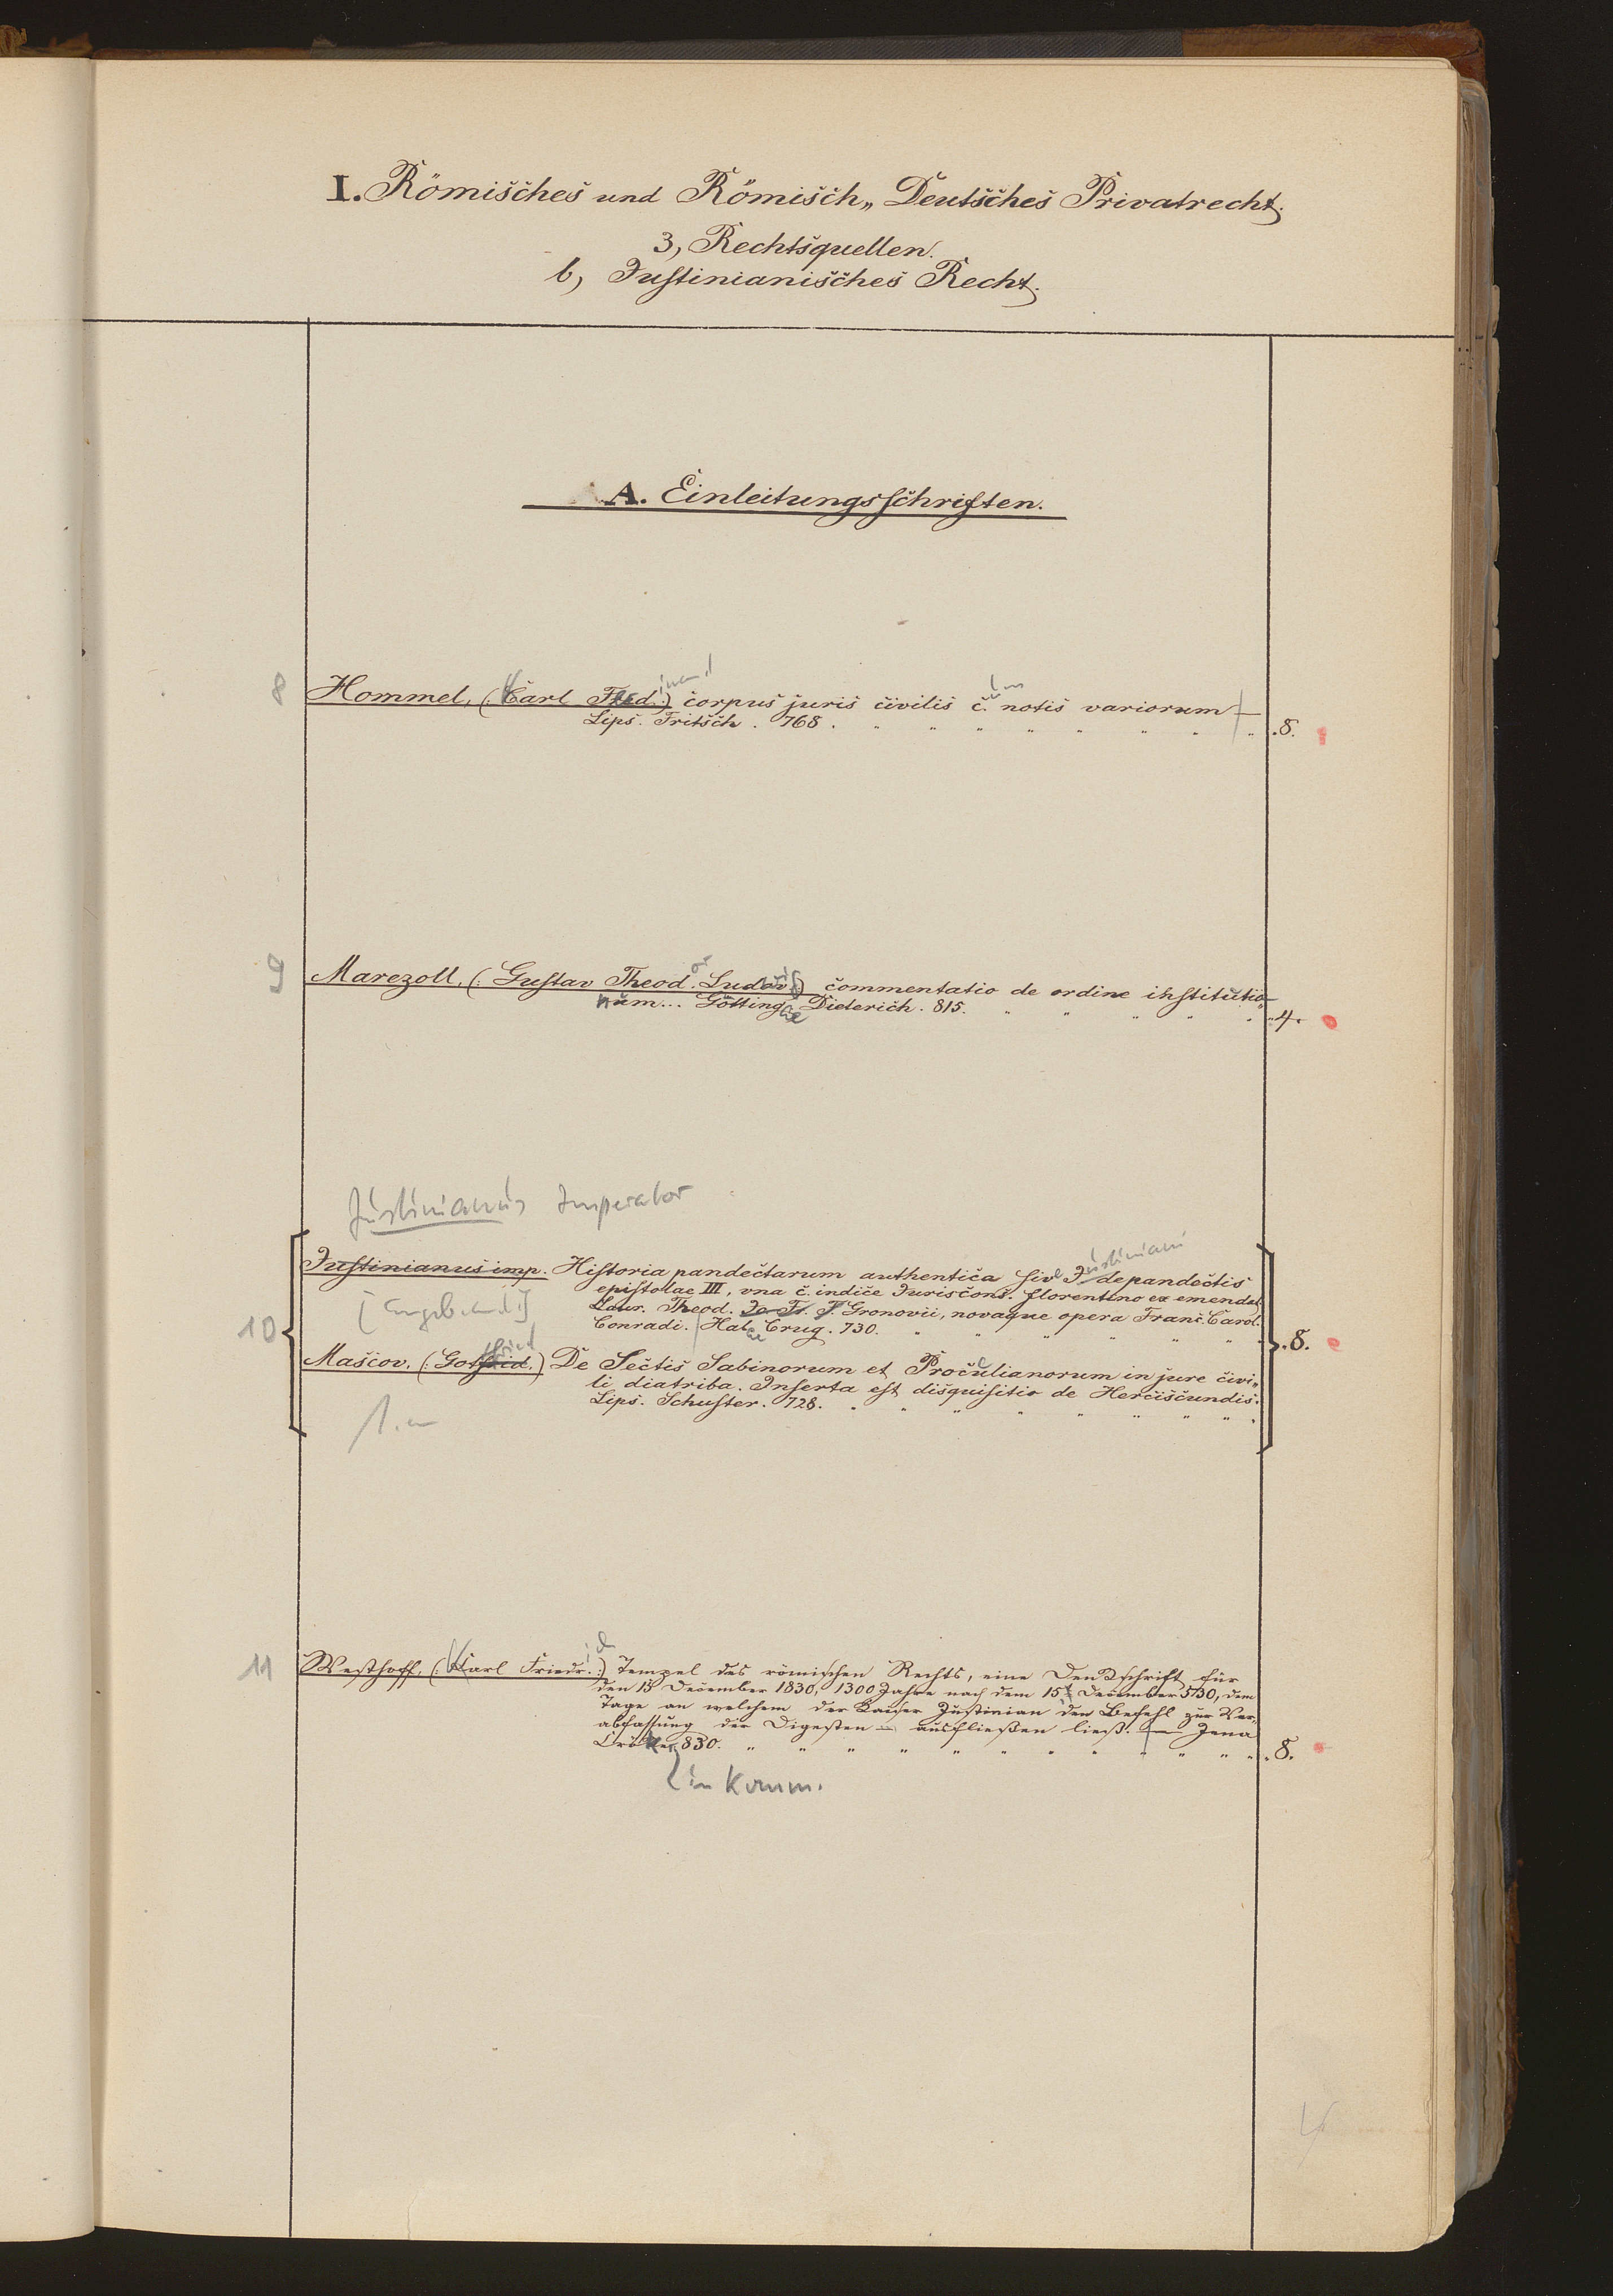 I. Römisches und Römisch„ Deutsches Privatrecht.
3, Rechtsquellen.
b, Justinianisches Recht.
A. Einleitungsschriften.
8 Hommel, (: Carl Ferd.:) corpus juris civilis c. notis variorum —
Lips. Fritsch. 768. .8.
9 Marezoll, (: Gustav Theod. Ludov.:) commentatio de ordine institutio„
num... Götting Dieterich. 815. 4.
Justinianus Imperator
Justinianus imp. Historia pandectarum authentica sive J. de pandectis
Justiniani
epistolae III, vna c. indice Jurisconf. florentino ex emendat.
[angeb. an d. :]
Laur. Theod. Jo. Fr. F. Gronovii, novaque opera Franc. Carol.
10 Conradi. Halae Crug. 730. .8.
Mascov, (: Gotfrid.:) De Sectis Sabinorum et Proculianorum in jure civi„
li diatriba. Inserta est disquisitio de Herciscundis.
Lips. Schuster. 728.
11 Westhoff, (: Karl Friedr.:) Tempel des römischen Rechts, eine Denkschrift für
den 15 December 1830, 1300 Jahre nach dem 15 December 530, dem
Tage an welchem der Kaiser Justinian den Befehl zur Ver„
abfassung der Digesten — ausfließen ließ. — Jena
Cröker 830. .8.
in Komm.